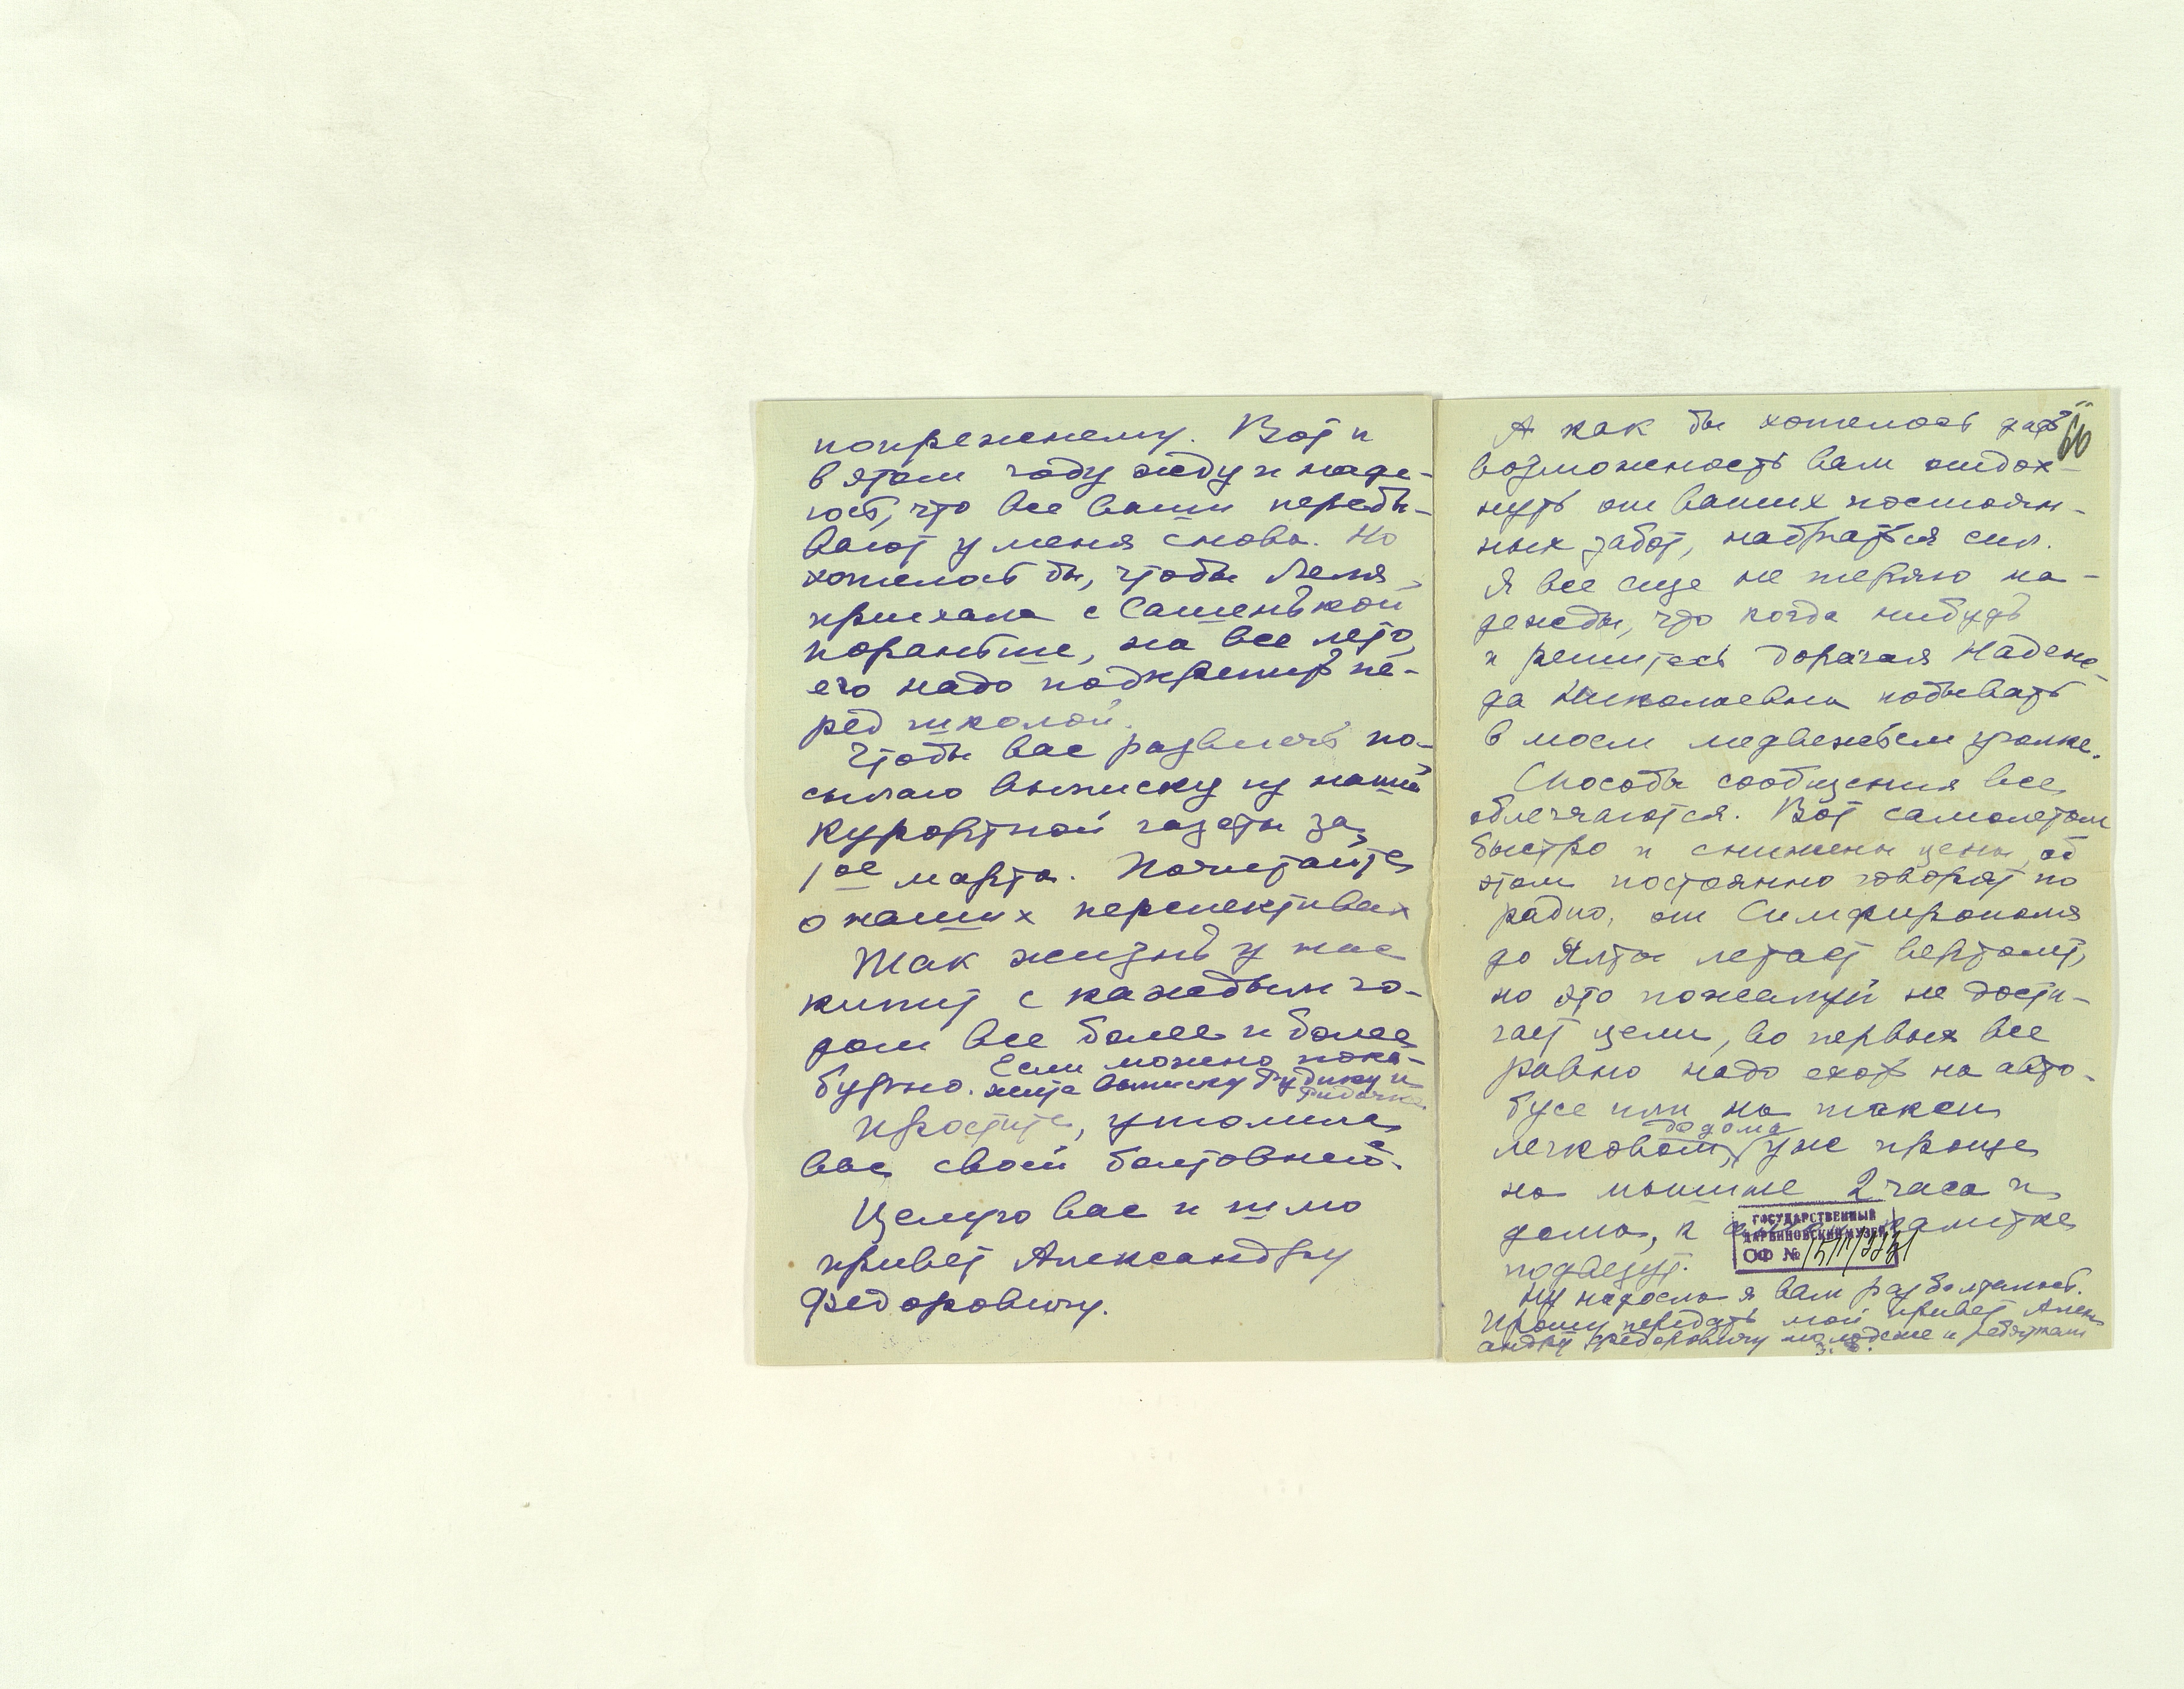 попрежнему. Вот и
в этом году жду и наде-
юсь, что все ваши перебы-
вают у меня снова. Но
хотелось бы, чтобы Леля
приехала с Сашенькой
пораньше, на все лето,
его надо подкрепить пе-
ред школой.
Чтобы вас развлечь по-
сылаю выписку из нашей
курортной газеты за
1ое марта. Почитайте
о наших перспективах
Так жизнь у нас
кипит с каждым го-
дом все более и более
бурно. Если можно пока-
жите выписку Рудику и
Простите, утомила
вас своей болтовней.
Целую вас и шлю
привет Александру
Федоровичу.
А как бы хотелось дать
возможность вам отдох-
нуть от ваших постоян-
ных забот, набраться сил.
Я все еще не теряю на-
дежды, что когда нибудь
и решитесь дорогая Надеж-
да Николаевна побывать
в моем медвежьем уголке.
Способы сообщения все
облегчаются. Вот самолетом
быстро и снижены цены, об
этом постоянно говорят по
радио, от Симферополя
до Ялты летает вертолет,
но это пожалуй не дости-
гает цели, во первых все
равно надо ехать на авто-
бусе или на такси
легковом, до дома уже проще
на машине 2 часа и
дома, к калитке
подвезут.
Ну надоела я вам разболталась.
Прошу передать мой привет Алекс
андру Федоровичу молодежи и ребятам
ГОСУДАРСТВЕННЫЙ
ДАРВИНОВСКИЙ МУЗЕЙ
ОФ №